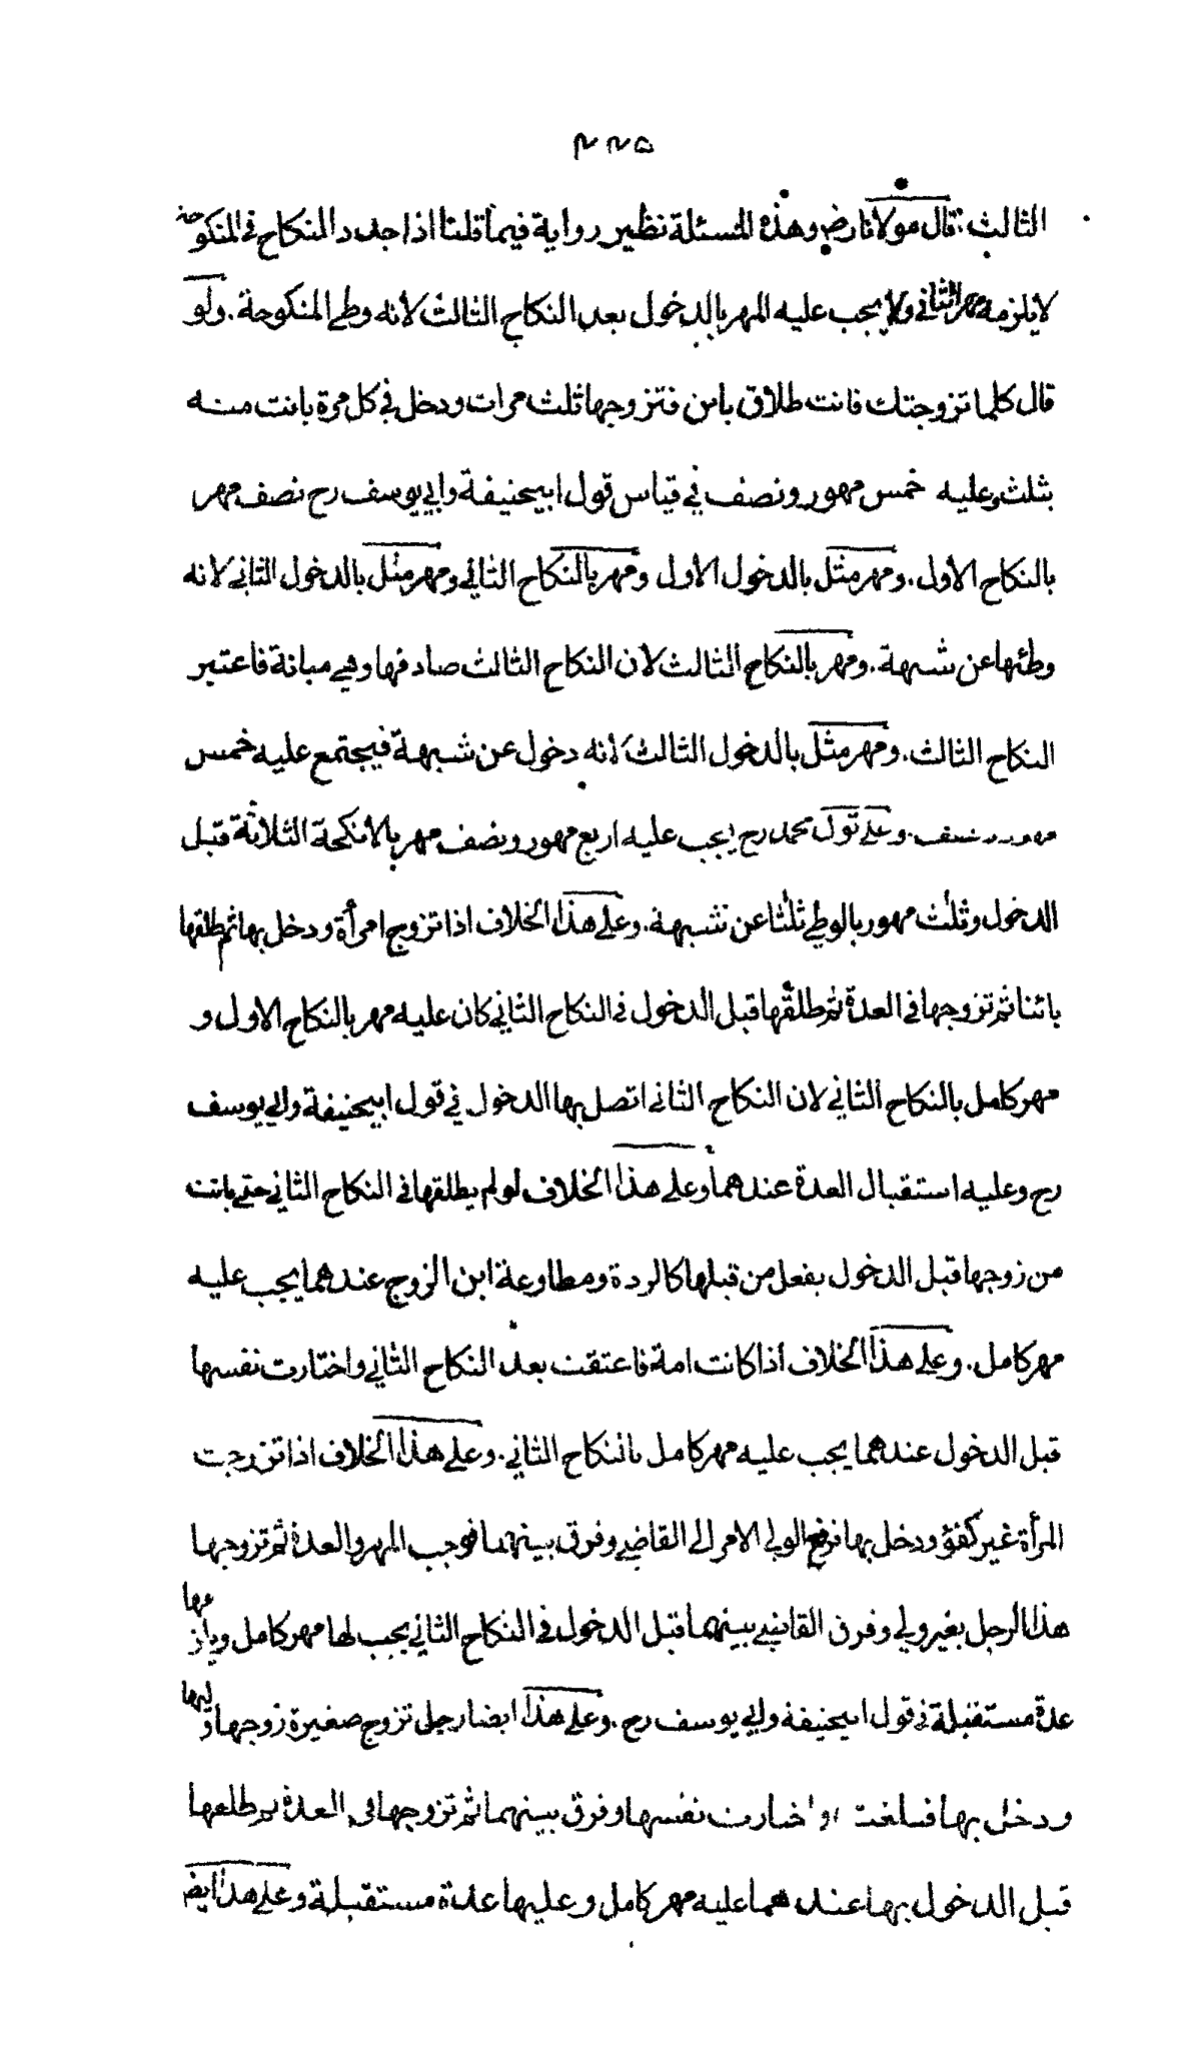 ٣٢٥
الثالث: قال مولانا رض وهذه المسئلة نظير رواية فيما قلنا اذا جدد النكاح في المنكوحة
لا يلزمه مهر الثاني ولا يجب عليه المهر بالدخول بعد النكاح الثالث لأنه وطي المنكوحة. ولو
قال كلما تزوجتك فانت طلاق باين فتزوجها ثلث مرات ودخل في كل مرة بانت منه
بثلث وعليه خمس مهور ونصف في قياس قول ابيحنيفة وابي يوسف رح نصف مهر
بالنكاح الأول. ومهر مثل بالدخول الاول ومهر بالنكاح الثاني ومهر مثل بالدخول الثاني لانه
وطئها عن شبهة. ومهر بالنكاح الثالث لان النكاح الثالث صادفها وهي مبانة فاعتبر
النكاح الثالث. ومهر مثل بالدخول الثالث لانه دخول عن شبهة فيجتمع عليه خمس
مهور ونصف. وعلى قول محمد رح يجب عليه اربع مهور ونصف مهر بالأنكحة الثلاثة قبل
الدخول وثلث مهور بالوطي ثلثا عن شبهة. وعلى هذا الخلاف اذا تزوج امرأة ودخل بها ثم طلقها
بائنا ثم تزوجها في العدة ثم طلقها قبل الدخول في النكاح الثاني كان عليه مهر بالنكاح الاول و
مهر كامل بالنكاح الثاني لان النكاح الثاني اتصل بها الدخول في قول ابيحنيفة وابي يوسف
رح وعليه استقبال العدة عندهما وعلى هذا الخلاف لو لم يطلقها في النكاح الثاني حتى بانت
من زوجها قبل الدخول بفعل من قبلها كالردة ومطاوعة ابن الزوج عندهما يجب عليه
مهر كامل. وعلى هذا الخلاف اذا كانت امة فاعتقت بعد النكاح الثاني واختارت نفسها
قبل الدخول عندهما يجب عليه مهر كامل بالنكاح الثاني. وعلى هذا الخلاف اذا تزوجت
المرأة غير كفؤ ودخل بها فرفع الولي الامر الى القاضي وفرق بينهما فوجب المهر والعدة ثم تزوجها
هذا الرجل بغير ولي وفرق القاضي بينهما قبل الدخول في النكاح الثاني يجب لها مهر كامل ويلزمها
عدة مستقبلة في قول ابيحنيفة وابي يوسف رح. وعلى هذا ايضا رجل تزوج صغيرة زوجها وليها
ودخل بها فبلغت واختارت نفسها وفرق بينهما ثم تزوجها في العدة ثم طلقها
قبل الدخول بها عندهما عليه مهر كامل وعليها عدة مستقبلة وعلى هذا ايض